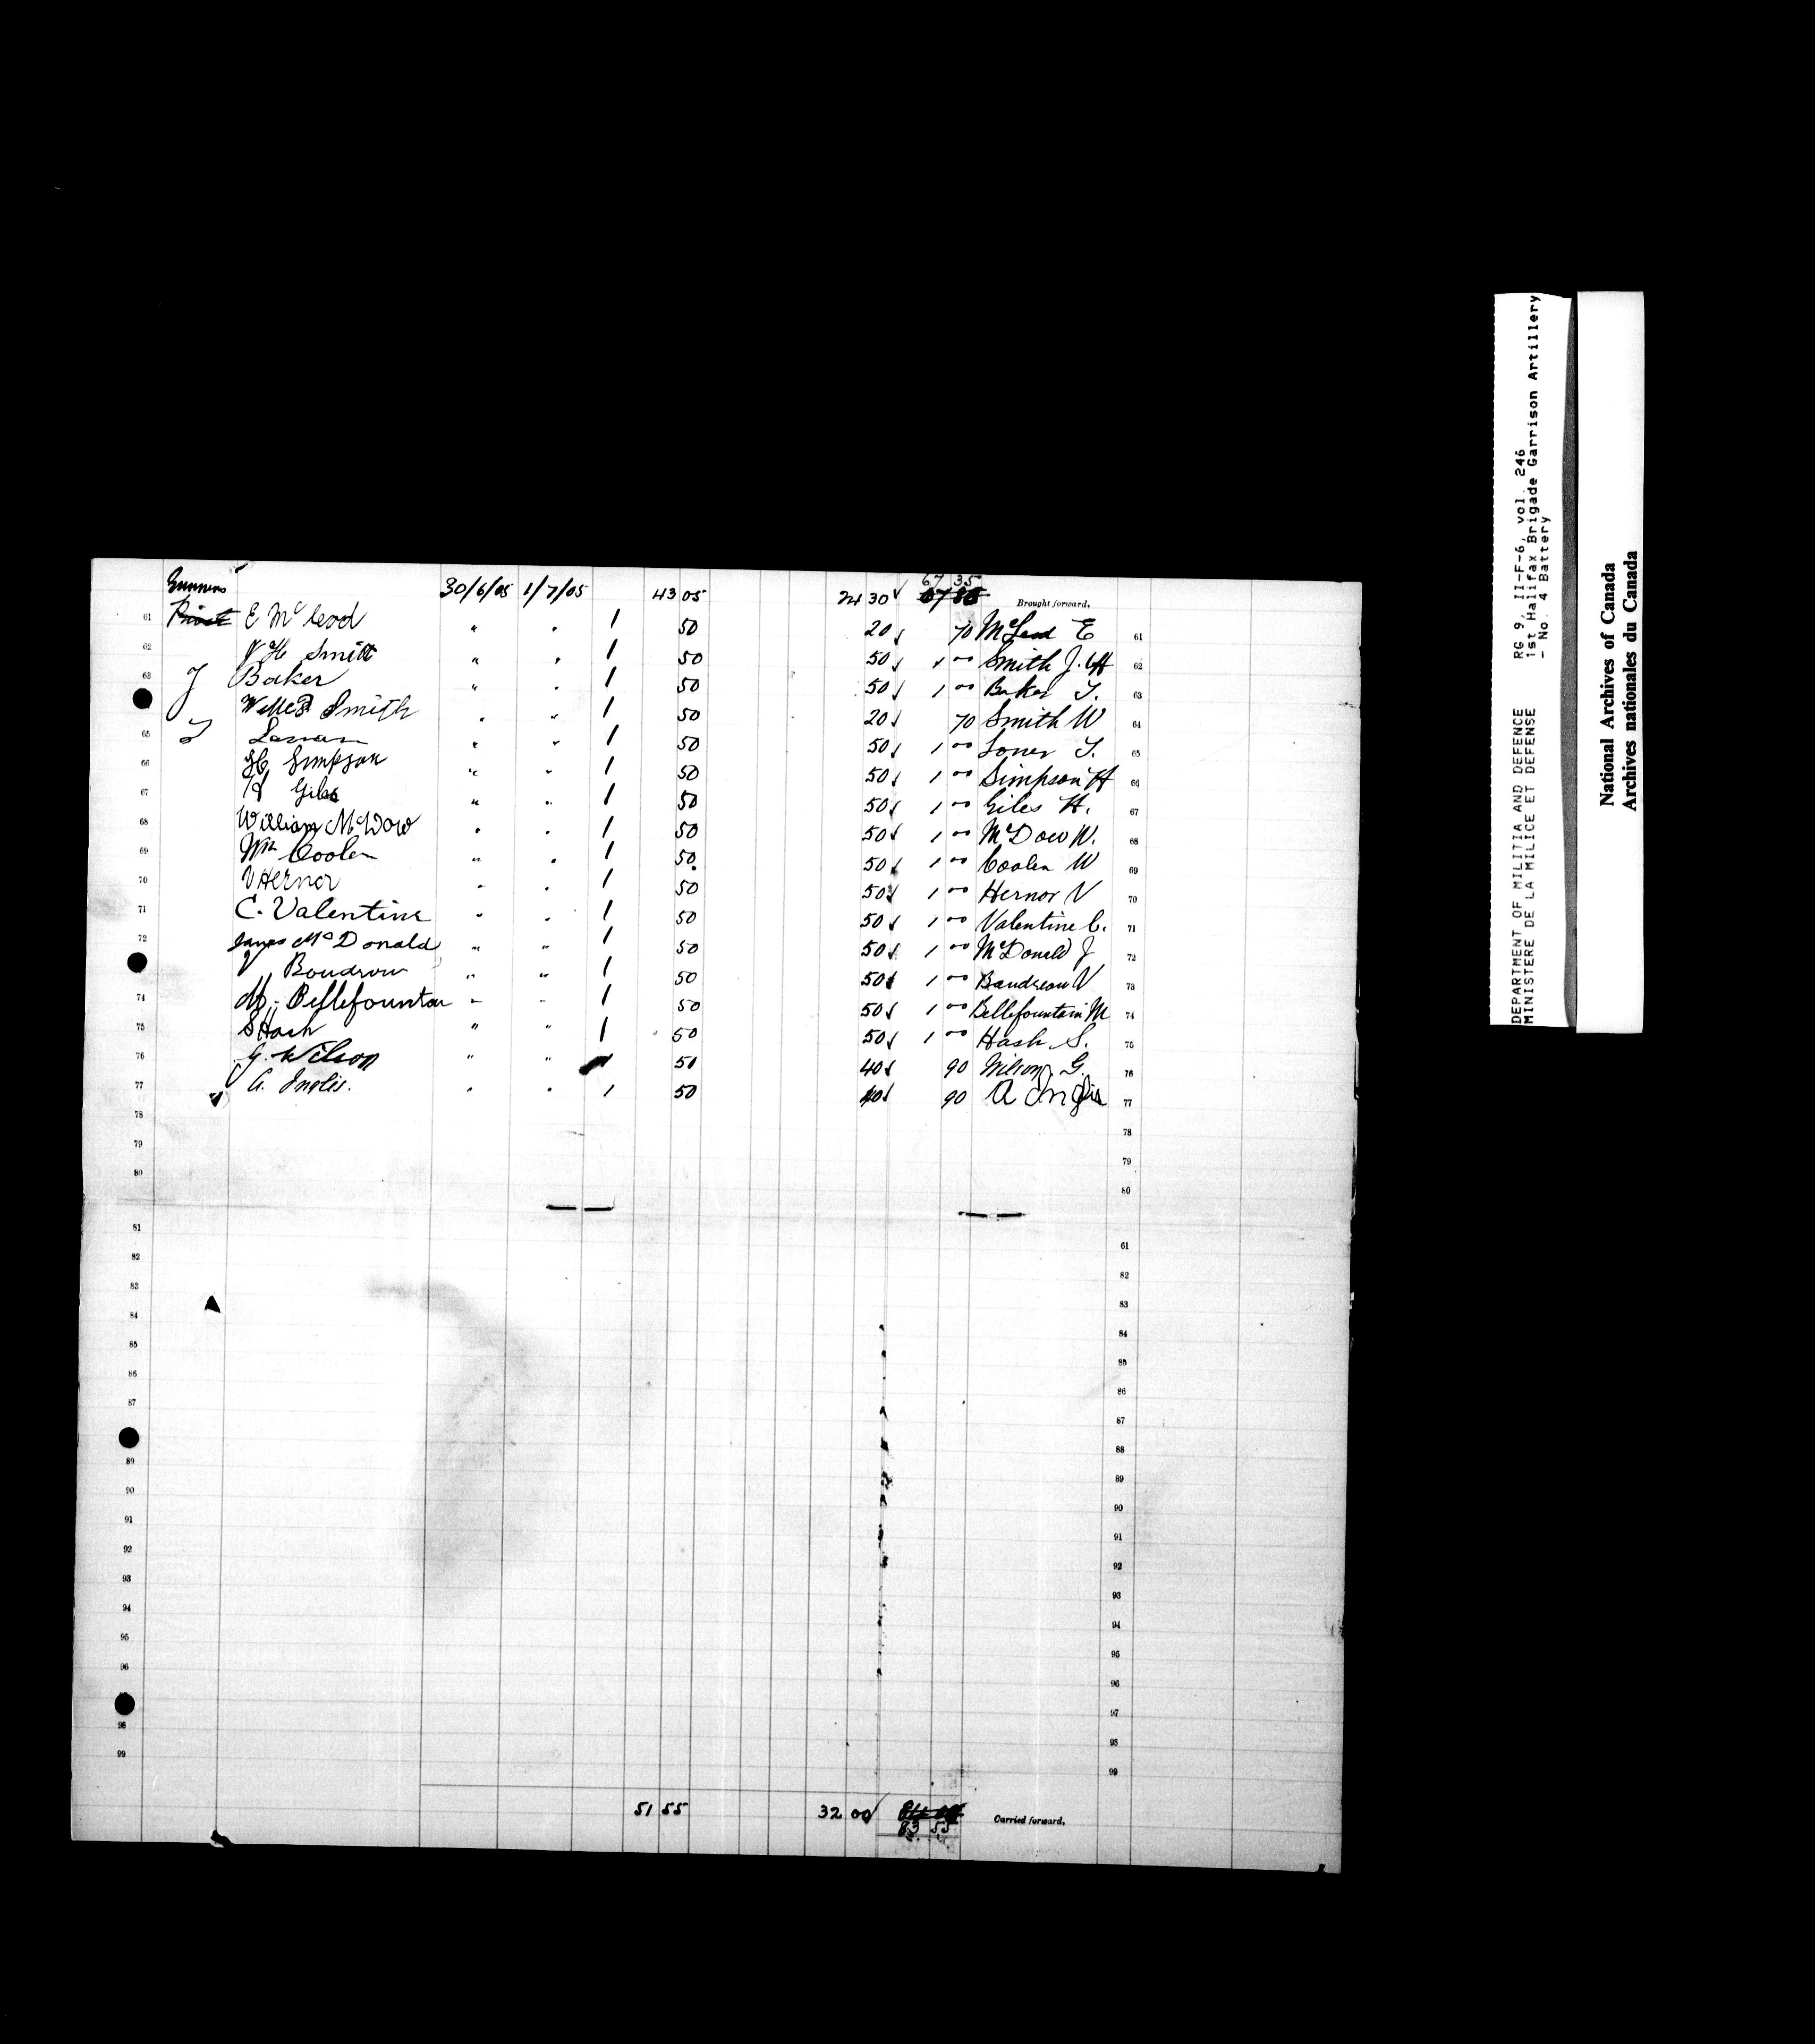 Gunners 30/6/05 1/7/05 43 05 24 30 67 35 Brought forward.
61 E McLeod " " 1 50 20 70 McLeod E 61
62 J H Smith " " 1 50 50 1 00 Smith J. H 62
63 J Baker " " 1 50 50 1 00 Baker J. 63
Smith " " 1 50 20 70 Smith W 64
65 " " 1 50 50 1 00 65
66 H Simpson " " 1 50 50 1 00 Simpson H 66
67 H Giles " " 1 50 50 1 00 Giles H. 67
68 William McDow " " 1 50 50 1 00 McDow W. 68
69 Wm Coolen " " 1 50 50 1 00 Coolen W 69
70 V Hernor " " 1 50 50 1 00 Hernor V 70
71 C. Valentine " " 1 50 50 1 00 Valentine C. 71
72 James McDonald " " 1 50 50 1 00 McDonald J 72
V Boudrow " " 1 50 50 1 00 Baudreau V 73
74 M. Bellefountan " " 1 50 50 1 00 Bellefountain M 74
75 S Hash " " 1 50 50 1 00 Hash S. 75
76 G. Wilson " " 1 50 40 90 Wilson G. 76
77 A. Inglis. " " 1 50 40 90 A Inglis 77
78 78
79 79
80 80
81 61
82 82
83 83
84 84
85 85
86 86
87 87
88
89 89
90 90
91 91
92 92
93 93
94 94
95 95
96 96
97
98 98
99 99
51 55 32 00 83 55 Carried forward.
DEPARTMENT OF MILITIA AND DEFENCE RG 9, II-F-6, vol. 246
MINISTERE DE LA MILICE ET DEFENSE 1st Halifax Brigade Garrison Artillery
- No. 4 Battery
National Archives of Canada
Archives nationales du Canada